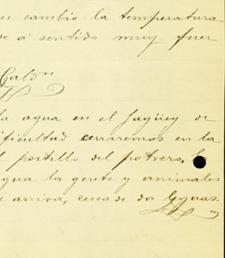 cambio la temperatura
sentido muy fuer
la agua en el Jagüey de
dificultad cerraremos en la
portillo del potrero,
agua la gente y animales
arriva, cerca de dos leguas